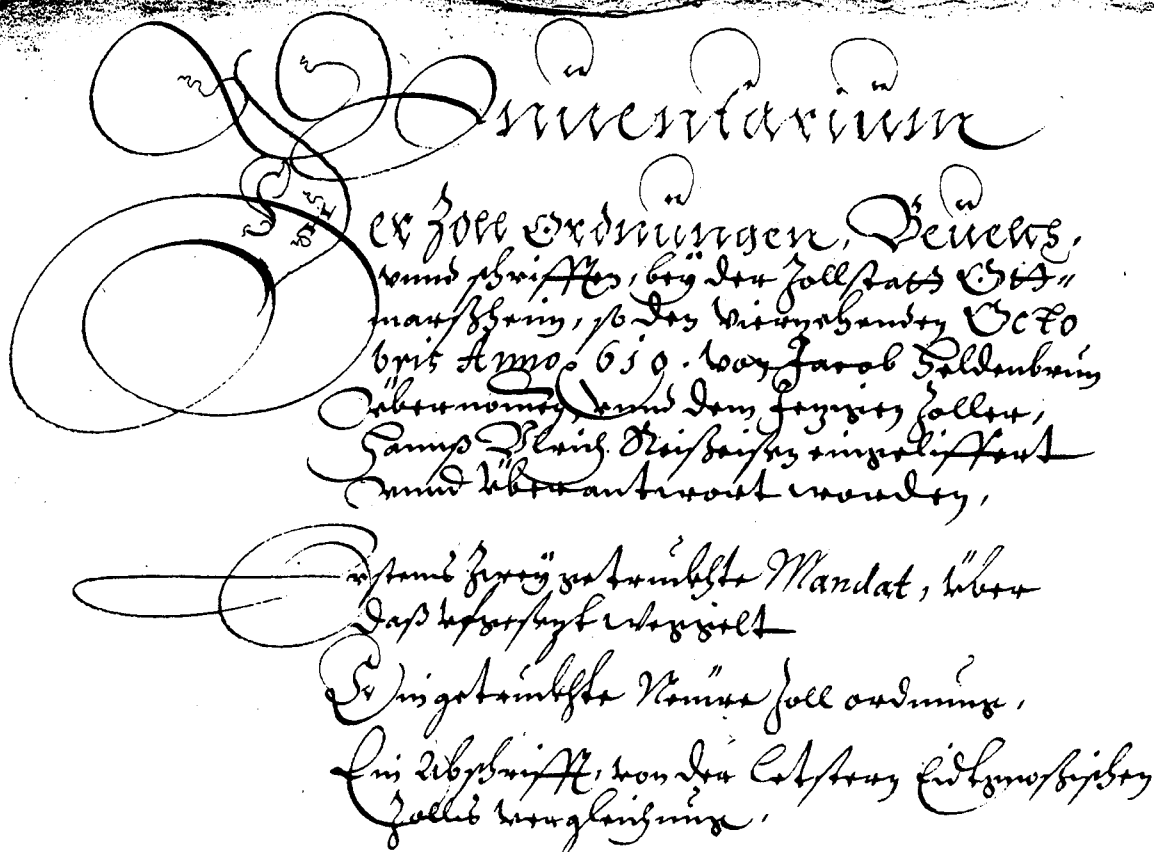 Inuentarium
Der Zoll Ordnungen, Beuelch,
vnnd schrifften, bey der Zollstatt Ott=
marßheim, so den Viernzehenden Octo
bris Anno 610. von Jacob Heldenbrun
übernomen, vnnd dem Jezigen Zoller,
Hannß Vlrich Reißeisen eingeliffert
vnnd überantwort worden,
Erstens Zwey getruckhte Mandat, über
daß vfgesezt Weggelt
Ein getruckhte Neüwe Zoll ordnung,
Ein Abschrifft, von der letstern Eidtgnoßischen
Zolls vergleichung,